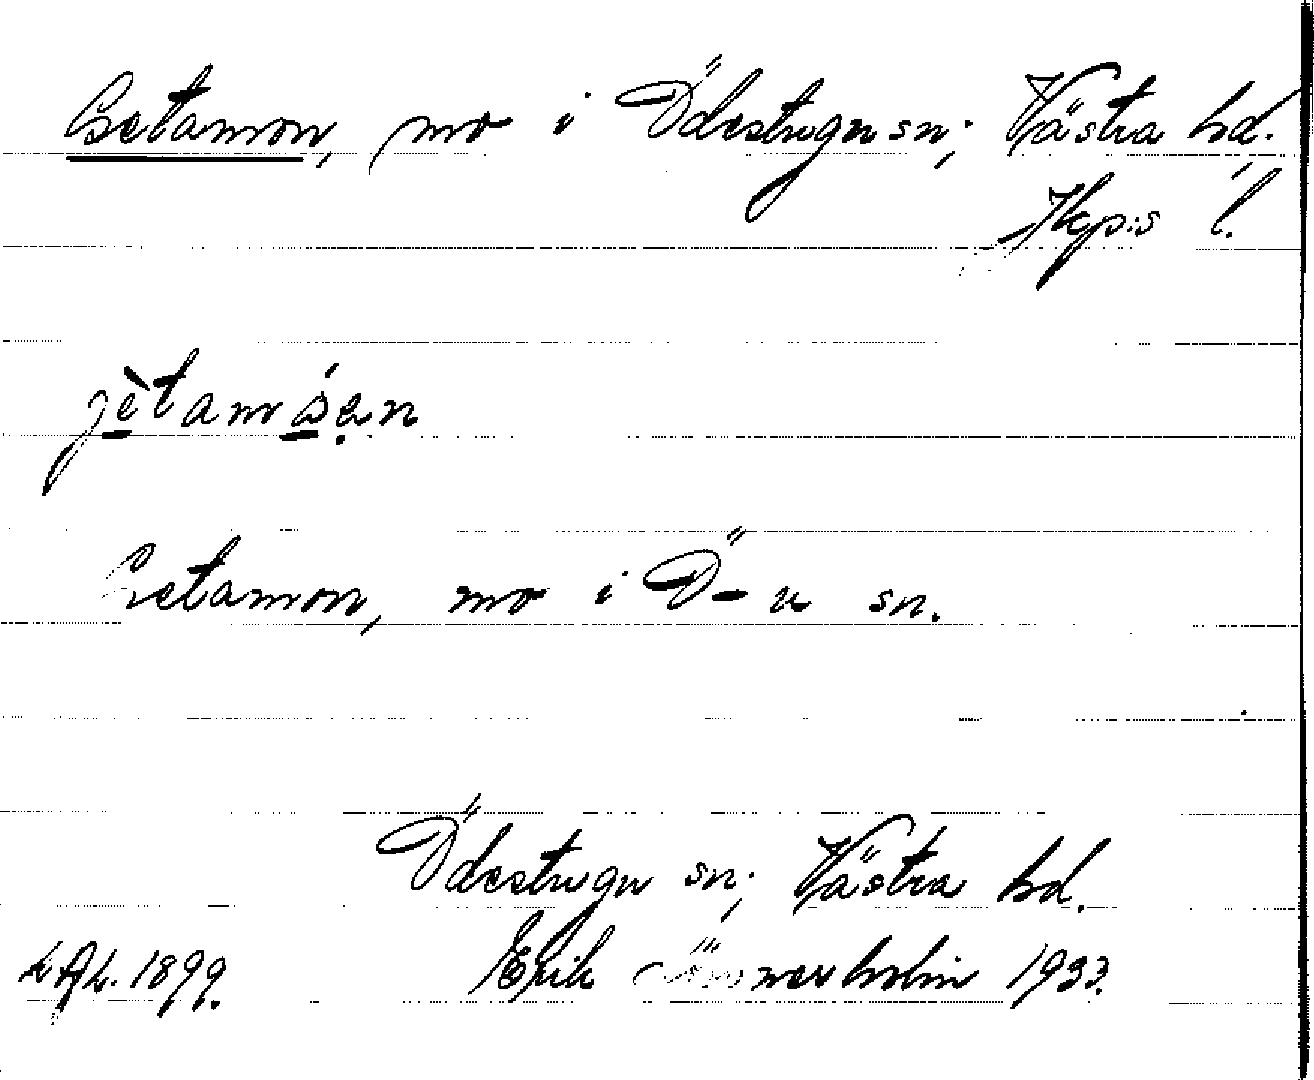 Getamon, mo i Ödestugu sn; Västra hd.
Jkp:s l.
jètamóen
Getamon, mo i Ö-u sn.
Ödestugu sn; Västra hd.
Erik 1933.
1899.